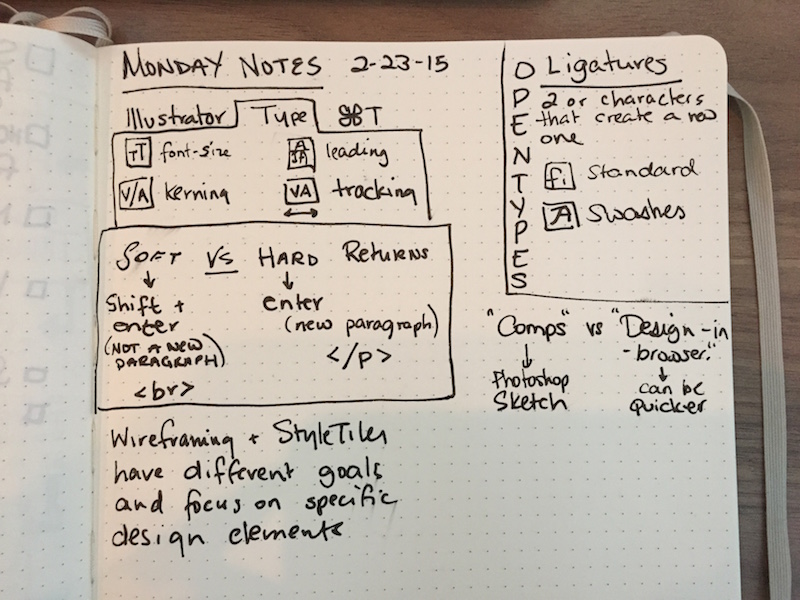 MONDAY NOTES 2-23-15
Illustrator Type ⌘T
TT font-size
A
A leading
V/A kerning
VA tracking
SOFT VS HARD RETURNS
Shift +
enter
(NOT A NEW
PARAGRAPH)
<br>
enter
(new paragraph)
</p>
Wireframing + StyleTiles
have different goals
and focus on specific
design elements
OPENTYPES
Ligatures
2 or characters
that create a new
one
fi Standard
A Swashes
"Comps" vs "Design-in
-browser."
Photoshop
Sketch
can be
quicker